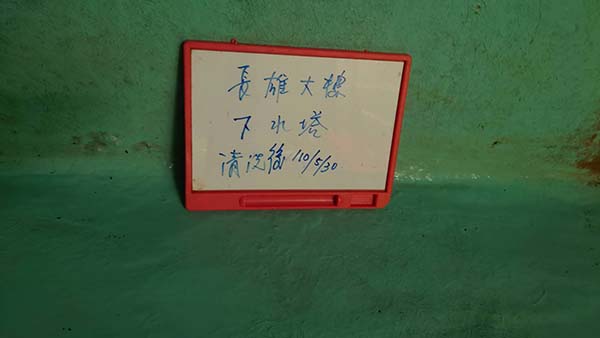 長雄大樓
下水塔
清洗後 110/5/30